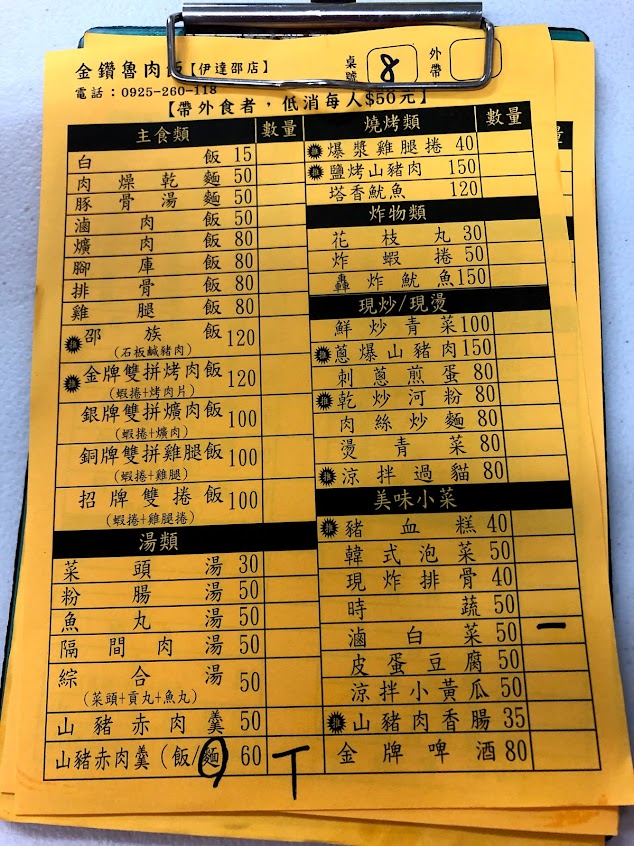 金鑽魯肉飯【伊達邵店】
桌號 8 外帶
電話：0925-260-118
【帶外食者，低消每人$50元】
主食類 數量
白飯 15
肉燥乾麵 50
豚骨湯麵 50
滷肉飯 50
爌肉飯 80
腳庫飯 80
排骨飯 80
雞腿飯 80
邵族飯 120
(石板鹹豬肉)
金牌雙拼烤肉飯 120
(蝦捲+烤肉片)
銀牌雙拼爌肉飯 100
(蝦捲+爌肉)
銅牌雙拼雞腿飯 100
(蝦捲+雞腿)
招牌雙捲飯 100
(蝦捲+雞腿捲)
湯類
菜頭湯 30
粉腸湯 50
魚丸湯 50
隔間肉湯 50
綜合湯 50
(菜頭+貢丸+魚丸)
山豬赤肉羹 50
山豬赤肉羹(飯/麵 60
燒烤類 數量
爆漿雞腿捲 40
鹽烤山豬肉 150
塔香魷魚 120
炸物類
花枝丸 30
炸蝦捲 50
轟炸魷魚 150
現炒/現燙
鮮炒青菜 100
蔥爆山豬肉 150
刺蔥煎蛋 80
乾炒河粉 80
肉絲炒麵 80
燙青菜 80
涼拌過貓 80
美味小菜
豬血糕 40
韓式泡菜 50
現炸排骨 40
時蔬 50
滷白菜 50 一
皮蛋豆腐 50
涼拌小黃瓜 50
山豬肉香腸 35
金牌啤酒 80